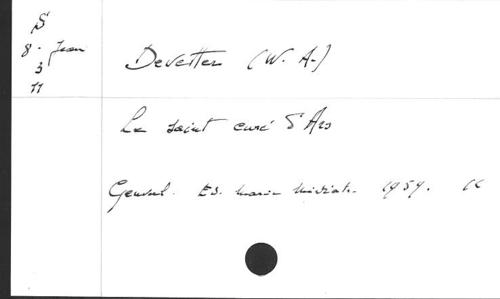 S
8 - Jean
3
11
Devetter (W. A.)
Le saint curé d'Ars
Genval. Ed. Marie Médiat. 1959.